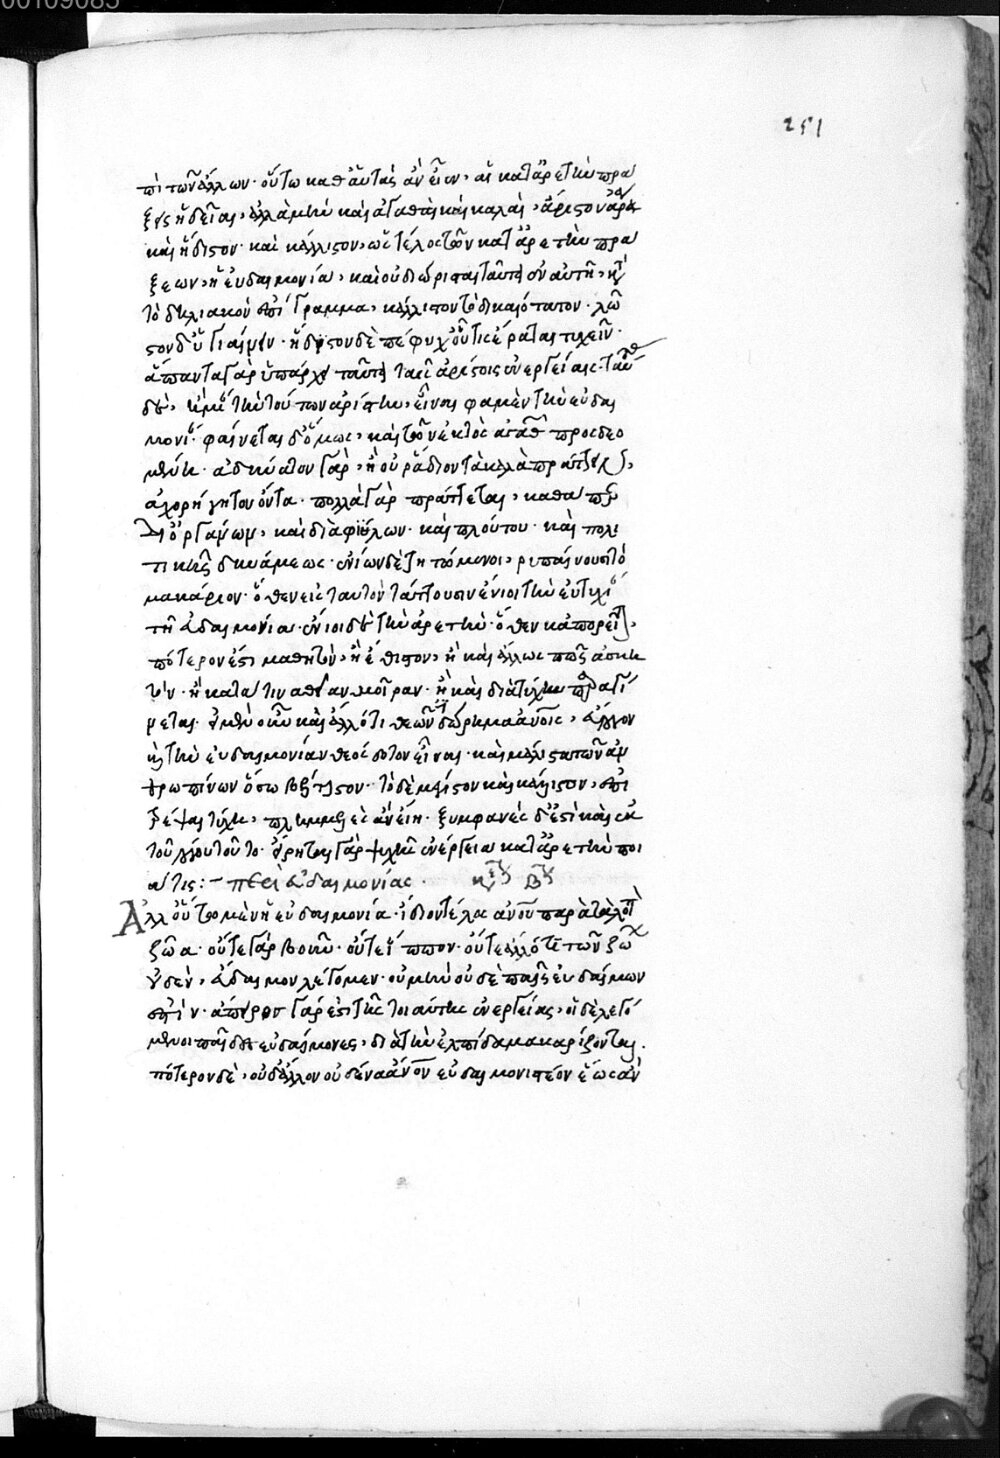 00109085
251
πὶ τῶν ἄλλων· οὕτω καθ' αὑτὰς ἂν εἶεν, αἱ κατ' ἀρετὴν πρά
ξεις ἡδεῖαι, ἀλλὰ μὴν καὶ ἀγαθαὶ καὶ καλαί, ἄριστον ἄρα
καὶ ἥδιστον· καὶ κάλλιστον, ὡς τέλος τῶν κατ' ἀρετὴν πρά
ξεων, ἡ εὐδαιμονία, καὶ οὐ διώρισται ταῦτα ἐν αὐτῇ, κατὰ
τὸ δηλιακὸν ἐπίγραμμα, κάλλιστον τὸ δικαιότατον· λῷ
στον δ' ὑγιαίνειν· ἥδιστον δὲ πέφυχ' οὗ τις ἐρᾶται τυχεῖν·
ἅπαντα γὰρ ὑπάρχει ταῦτα ταῖς ἀρίσταις ἐνεργείαις· ταύτας
δὲ, ἢ μίαν τὴν τούτων ἀρίστην, εἶναι φαμὲν τὴν εὐδαι
μονίαν· φαίνεται δ' ὅμως, καὶ τῶν ἐκτὸς ἀγαθῶν προσδεο
μένη· ἀδύνατον γὰρ, ἢ οὐ ῥᾴδιον τὰ καλὰ πράττειν,
ἀχορήγητον ὄντα· πολλὰ γὰρ πράττεται, καθάπερ
δι' ὀργάνων, καὶ διὰ φίλων· καὶ πλούτου· καὶ πολι
τικῆς δυνάμεως· ἐνίων δὲ τητώμενοι, ῥυπαίνουσι τὸ
μακάριον· ὅθεν εἰς ταυτὸν τάττουσιν ἔνιοι τὴν εὐτυχίαν
τῇ εὐδαιμονίᾳ· ἔνιοι δὲ τὴν ἀρετήν· ὅθεν κἀπορεῖται,
πότερόν ἐστι μαθητὸν, ἢ ἐθιστὸν, ἢ καὶ ἄλλως πως ἀσκη
τόν· ἢ κατά τινα θείαν μοῖραν· ἢ καὶ διὰ τύχην παραγί
νεται· εἰ μὲν οὖν καὶ ἄλλό τι θεῶν δώρημα ἀνοις, εὔλογον
καὶ τὴν εὐδαιμονίαν θεόσδοτον εἶναι· καὶ μάλιστα τῶν ἀν
θρωπίνων ὅσῳ βέλτιστον· τὸ δὲ μέγιστον καὶ κάλλιστον, ἐπι
τρέψαι τύχῃ, πλημμελὲς ἂν εἴη· ξυμφανὲς δ' ἐστὶ καὶ ἐκ
τοῦ λόγου τοῦτο· εἴρηται γὰρ ψυχῆς ἐνέργεια κατ' ἀρετὴν ποι
ά τις:— περὶ εὐδαιμονίας·
Ἀλλ' οὕτω μὲν ἡ εὐδαιμονία· ἴδιον τέλος ἀνου παρὰ τἆλλα
ζῶα· οὔτε γὰρ βοῦν· οὔτε ἵππον· οὔτε ἄλλό τι τῶν ζώων
οὐδὲν, εὔδαιμον λέγομεν· οὐ μὴν οὐδὲ παῖς εὐδαίμων
ἐστίν· ἄπειρος γάρ ἐστι τῆς τοιαύτης ἐνεργείας, οἱ δὲ λεγό
μενοι παῖδες εὐδαίμονες, διὰ τὴν ἐλπίδα μακαρίζονται·
πότερον δὲ, οὐδ' ἄλλον οὐδένα ἀνον εὐδαιμονιστέον ἕως ἂν